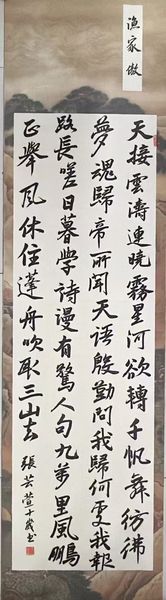 漁家傲
天接雲濤連曉霧星河欲轉千帆舞彷彿
夢魂歸帝所聞天語殷勤問我歸何處我報
路長嗟日暮學詩漫有驚人句九萬里風鵬
正舉風休住蓬舟吹取三山去
張若萱十歲書